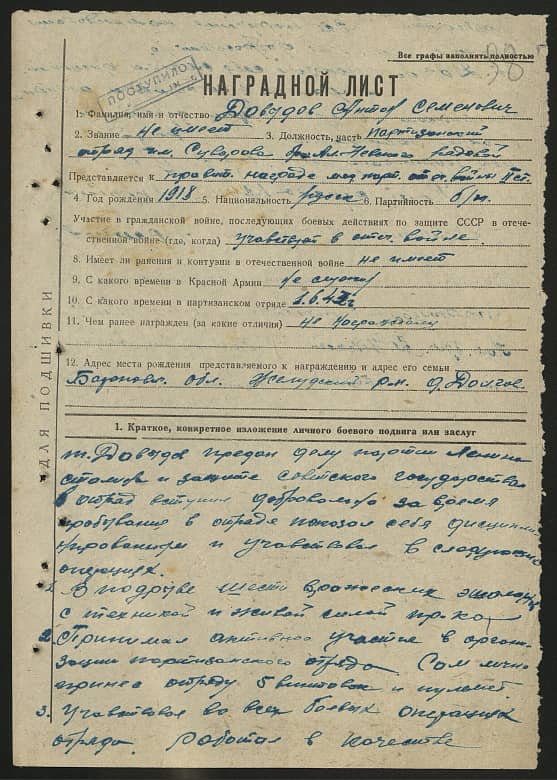 Все графы заполнять полностью
38
НАГРАДНОЙ ЛИСТ
1. Фамилия, имя и отчество Довудов Антон Семенович
2. Звание не имеет 3. Должность, часть партизанский
отряд им. Суворова рядовой
Представляется к правит. награде мед. парт. отеч. войны II ст.
4. Год рождения 1918 5. Национальность 6. Партийность б/п.
Участие в гражданской войне, последующих боевых действиях по защите СССР в отече-
ственной войне (где, когда) участвует в отеч. войне.
8. Имеет ли ранения и контузии в отечественной войне не имеет
9. С какого времени в Красной Армии не служил
10. С какого времени в партизанском отряде
11. Чем ранее награжден (за какие отличия) не награждался
12. Адрес места рождения представляемого к награждению и адрес его семьи
обл. р-н. д.
ДЛЯ ПОДШИВКИ
1. Краткое, конкретное изложение личного боевого подвига или заслуг
т. Довудов предан делу партии Ленина
Сталина и защите советского государства
В отряд вступил добровольно за время
пребывания в отряде показал себя дисципли-
нированным и участвовал в следующих
операциях.
1. В подрыве шести вражеских эшелонов
с техникой и живой силой пр-ка
2. Принимал активное участие в органи-
зации партизанского отряда. Сам лично
принес отряду 5 винтовок и пулемет.
3. Участвовал во всех боевых операциях
отряда. Работал в качестве